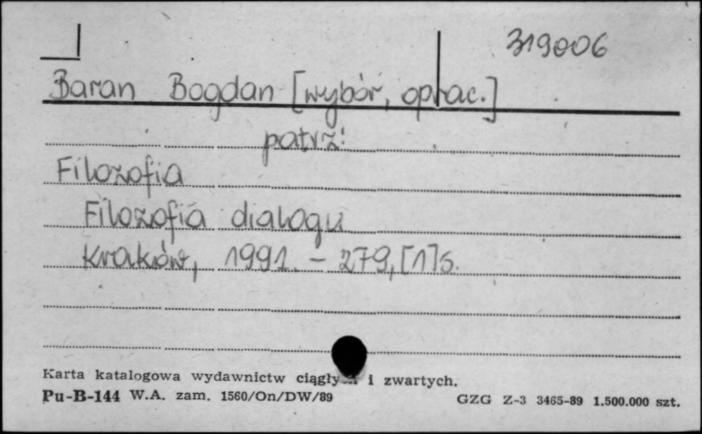 319006
Baran Bogdan [wybór, oprac.]
patrz:
Filozofia
Filozofia dialogu
Kraków, 1991. - 279, [1] s.
Karta katalogowa wydawnictw i zwartych.
Pu-B-144 W.A. zam. 1560/On/DW/89
GZG Z-3 3465-89 1.500.000 szt.